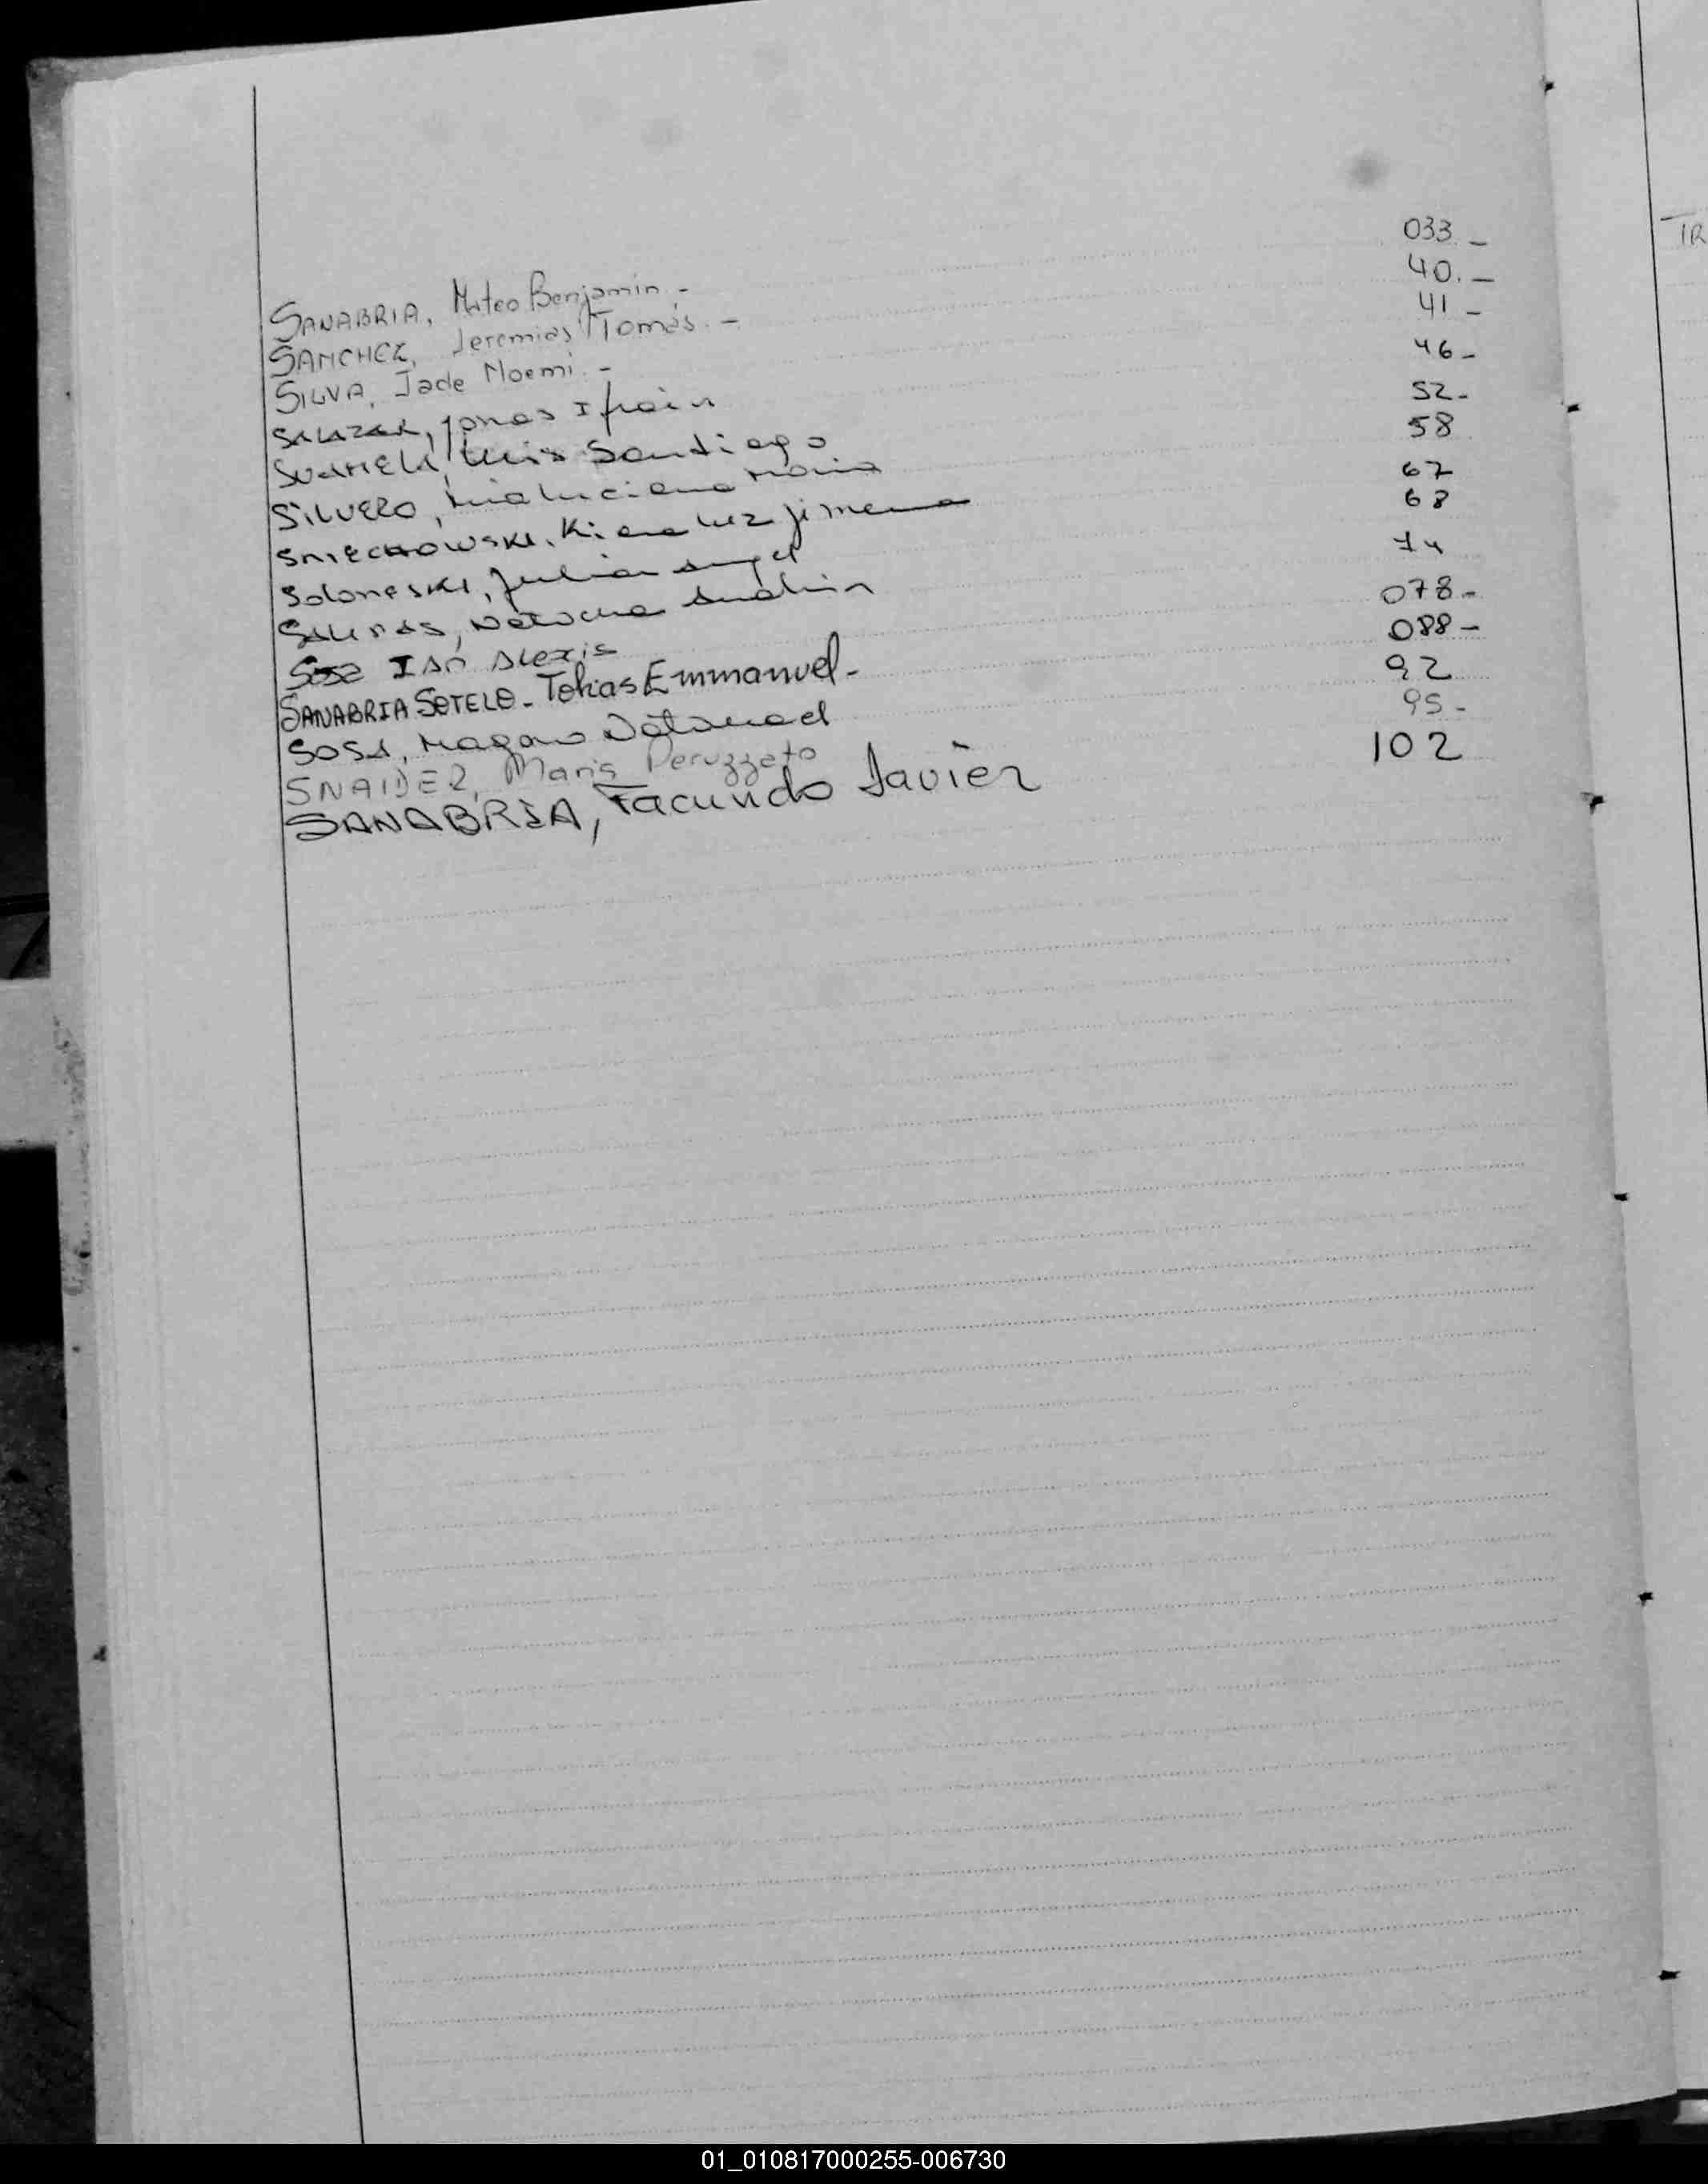 SANABRIA, Mateo Benjamin.- 033.-
SANCHEZ, Jeremias Tomás.- 40.-
SILVA, Jade Noemi.- 41-
SALAZAR, Jonas 46-
Luis Santiago 52-
SILVERO, Mia Luciana 58
SNIECHOWSKI, Kiara Luz Jimena 67
Soloneski, Julian Angel 68
SALINAS, 74
Sosa Ian Alexis 078-
SANABRIA SOTELO- Tobias Emmanuel- 088-
SOSA, 92
SNAIDER, Maris Peruzzato 95-
SANABRIA, Facundo Javier 102
TR
01_010817000255-006730